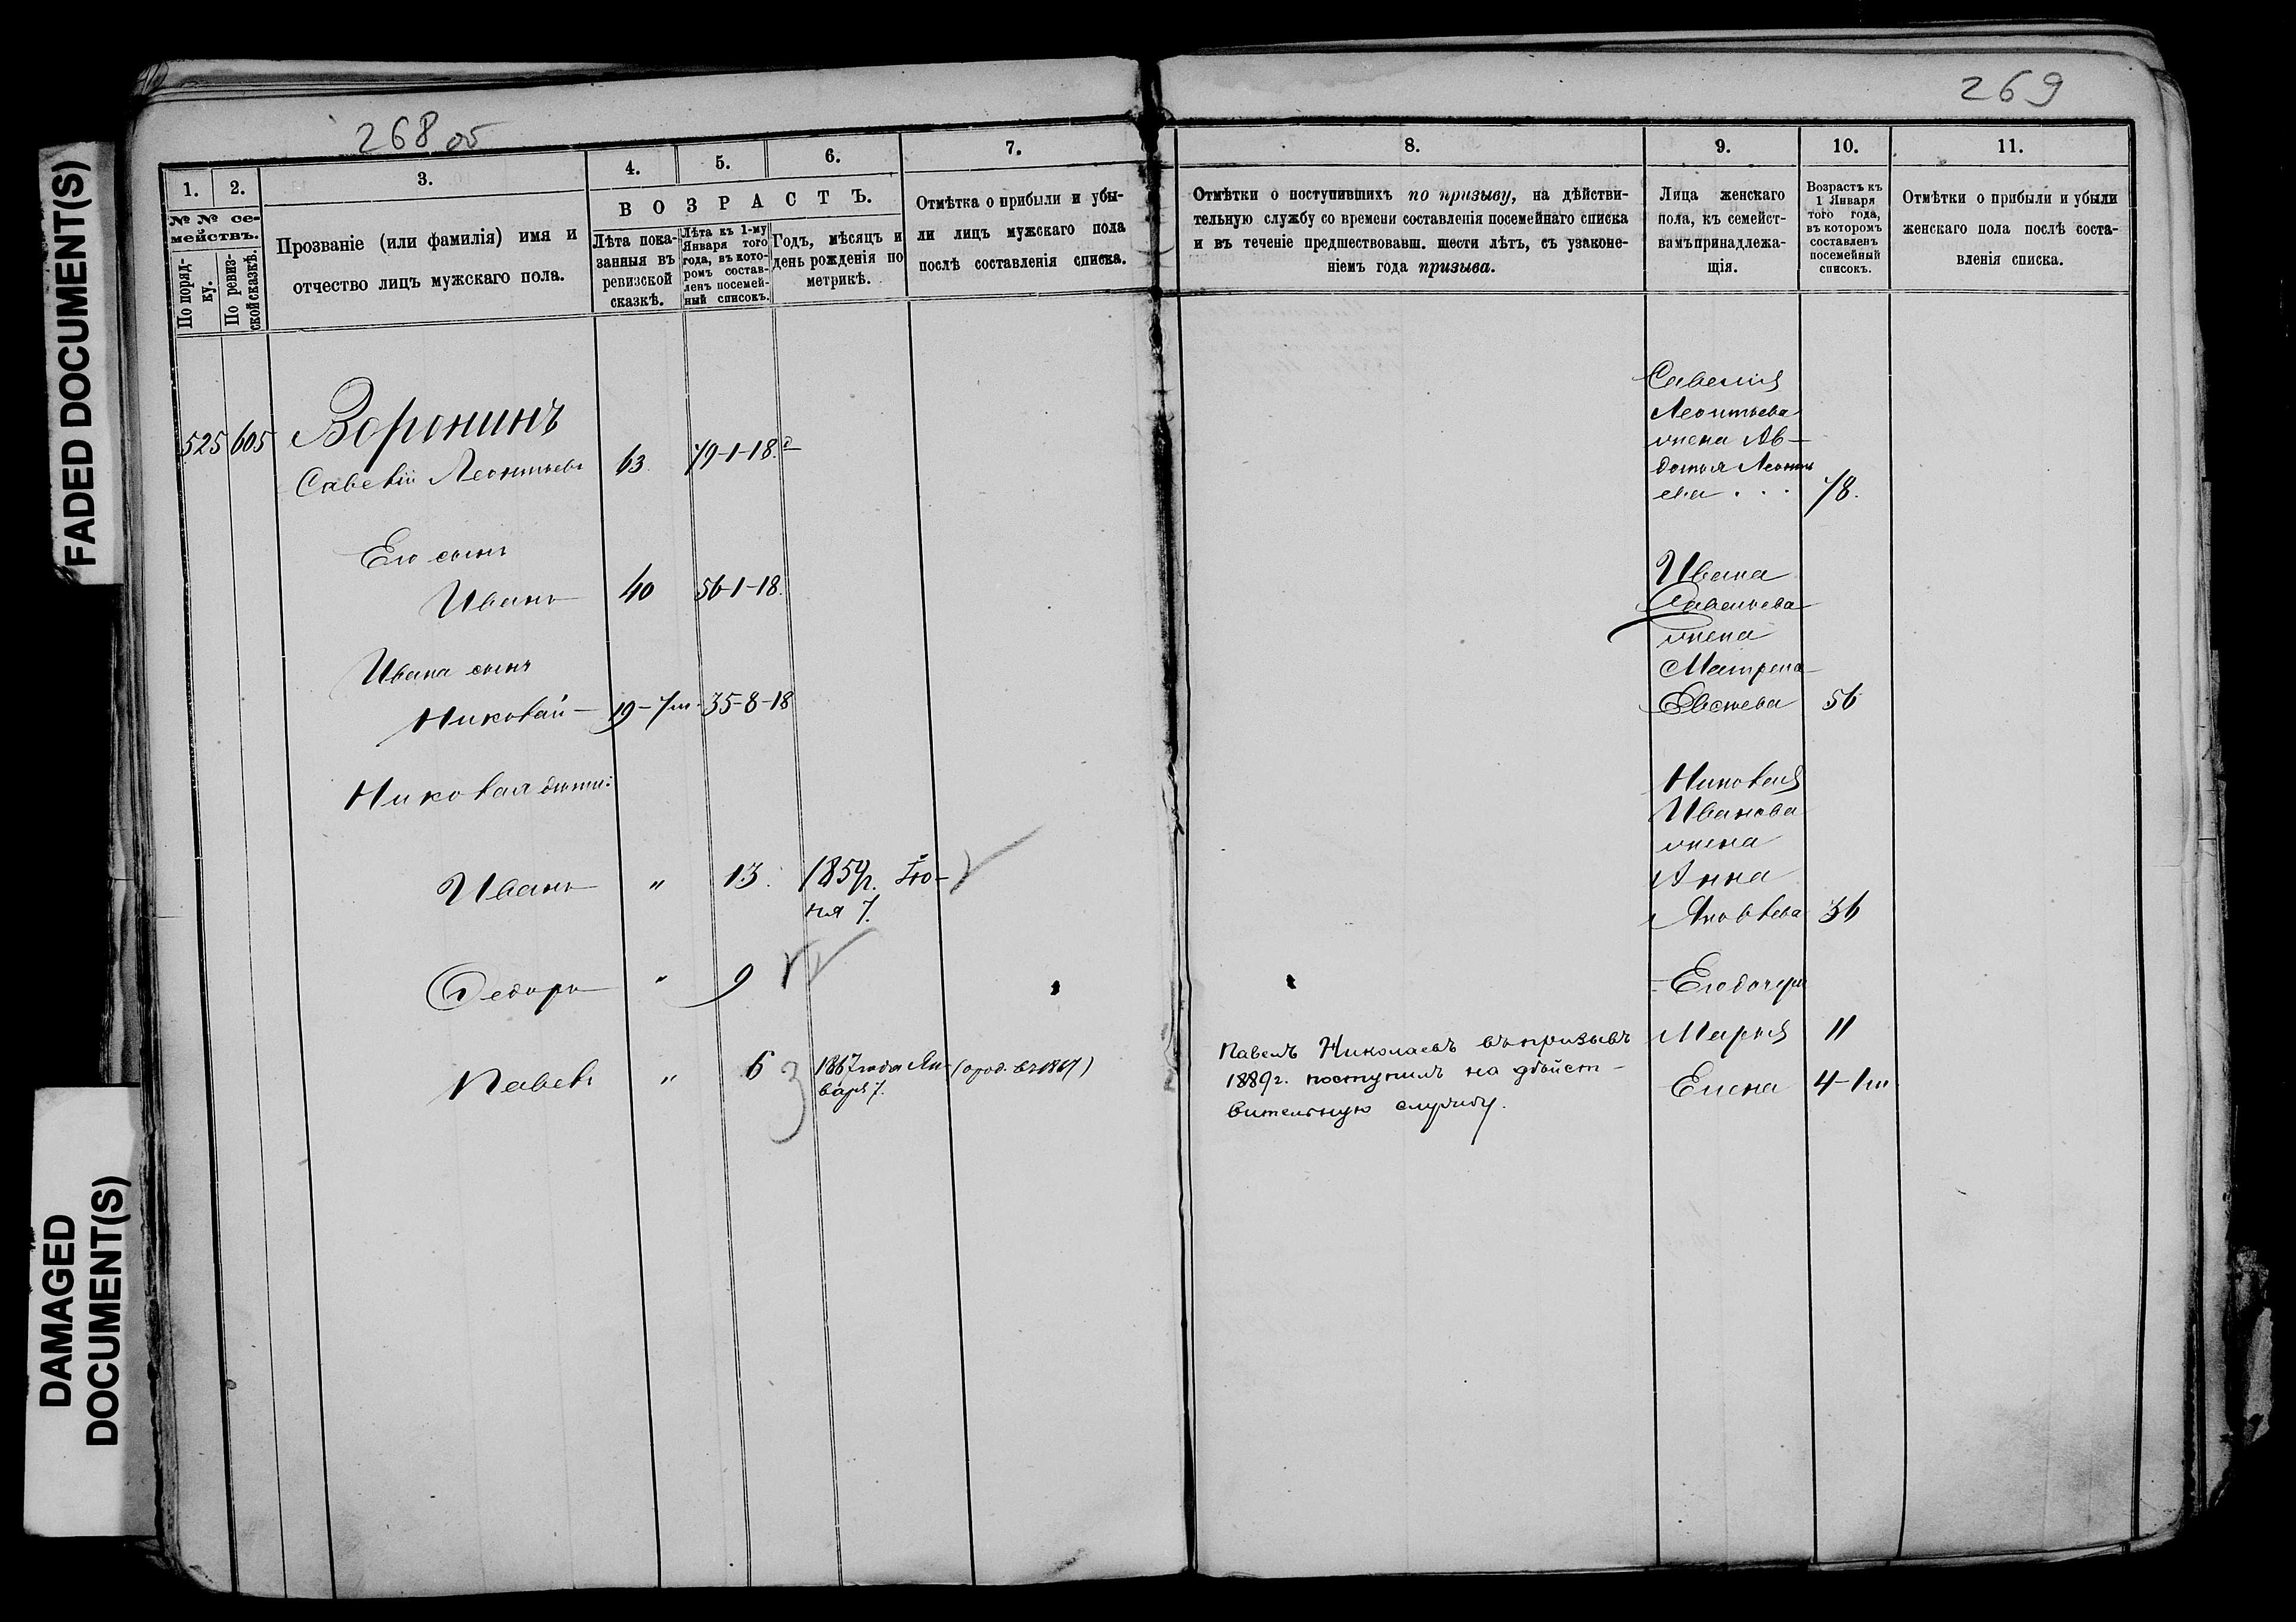 FADED DOCUMENT(S)
DAMAGED
DOCUMENT(S)
268 об
1.
2.
3.
4.
5.
6.
7.
№ № се-
мействъ.
По поряд-
ку.
По ревиз-
ской сказкѣ.
Прозваніе (или фамилія) имя и
отчество лицъ мужскаго пола.
ВОЗРАСТЪ.
Лѣта пока-
занныя въ
ревизской
сказкѣ.
Лѣта къ 1-му
Января того
года, въ кото-
ромъ состав-
ленъ посемей-
ный списокъ.
Годъ, мѣсяцъ и
день рожденія по
метрикѣ.
Отмѣтка о прибыли и убы-
ли лицъ мужскаго пола
послѣ составленія списка.
525 605 Воронинъ
Савелій Леонтьевъ 63 79-1-18
Его сынъ
Иванъ 40 56-1-18.
Ивана сынъ
Николай 19-7м. 35-8-18
Николая дѣти:
Иванъ " 13. 1859г. Iю-
ня 7.
Ѳедоръ " 9
Павелъ " 6 1867 года Ян- (ород. въ 1867)
варя 7.
3
269
8.
9.
10.
11.
Отмѣтки о поступившихъ по призыву, на дѣйстви-
тельную службу со времени составленія посемейнаго списка
и въ теченіе предшествовавш. шести лѣтъ, съ узаконе-
ніемъ года призыва.
Лица женскаго
пола, къ семейст-
вамъ принадлежа-
щія.
Возрастъ къ
1 Января
того года,
въ которомъ
составленъ
посемейный
списокъ.
Отмѣтки о прибыли и убыли
женскаго пола послѣ соста-
вленія списка.
Савелія
Леонтьева
жена Ав-
дотья Леонть
ева . . . 78.
Ивана
Савельева
жена
Матрена
Евсѣева 56
Николая
Иванова
жена
Анна
Яковлева 36
Его дочери
Марья 11
Елена 4-1м
Павелъ Николаевъ въ призывъ
1889г. поступилъ на дѣйст-
вительную службу.